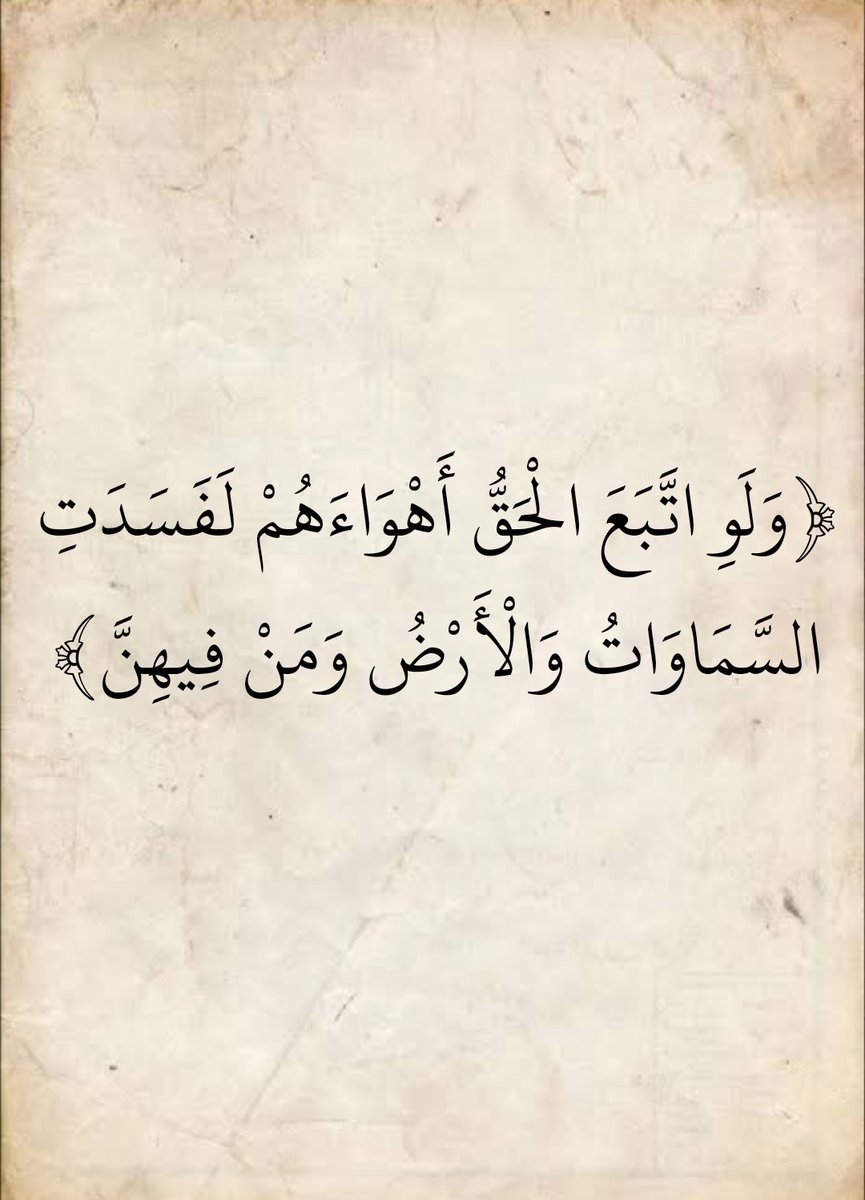 ﴿وَلَوِ اتَّبَعَ الْحَقُّ أَهْوَاءَهُمْ لَفَسَدَتِ
السَّمَاوَاتُ وَالْأَرْضُ وَمَنْ فِيهِنَّ﴾